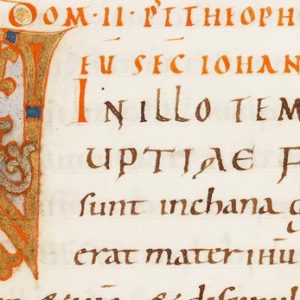 DOM·II·P̄TTHEOPH
EU SEC IOHAN
IN ILLO TEM
UPTIAE F
sunt inchana g
erat materihu